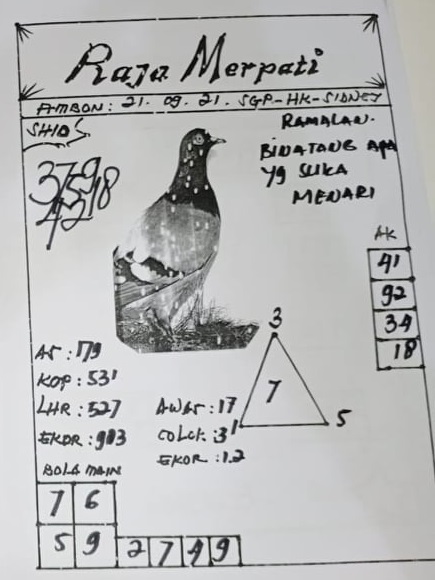 Raja Merpati
AMBON: 21. 09. 21. SGP-HK-SIDNEY
SHIO
RAMALAN.
BINATANG APA
YG SUKA
MENARI
3759
4
18
AK
41
92
34
18
3
7
1
5
AS: 179
KOP: 531
LHR: 527
EKOR: 913
AWAS: 17
COLOK: 3
EKOR: 1.2
BOLA MAIN
7 6
5 9
2 7 4 9